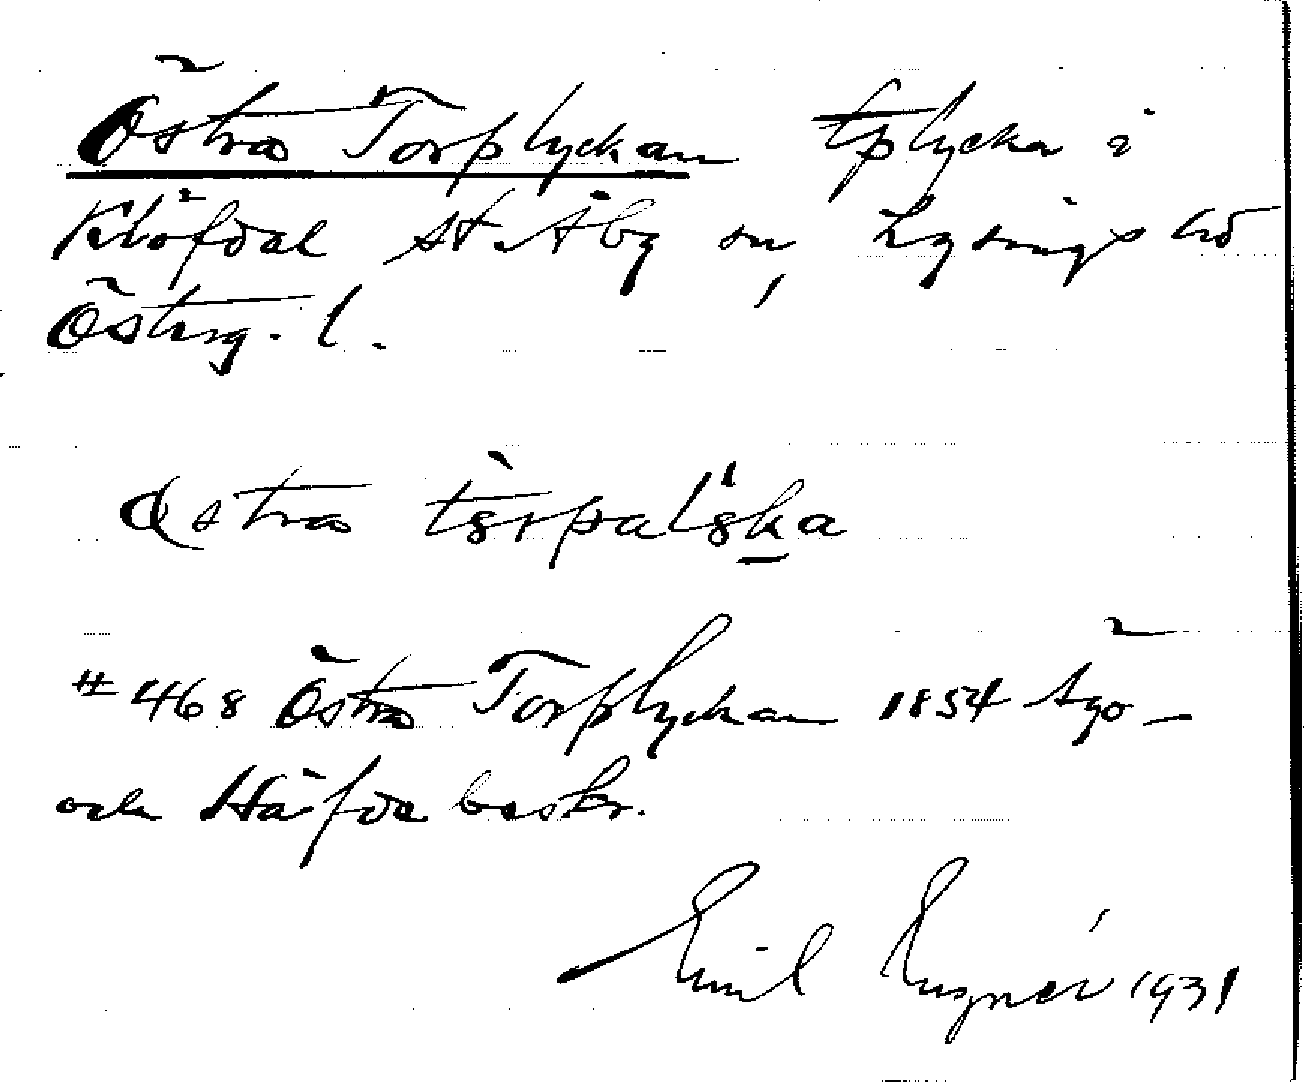 Östra Torplyckan tplycka i
Klöfdal st. Åby sn, Lysings hd
Österg. l.
östra torpalöska
# 468 Östra Torplyckan 1854 Ägo-
och Häfda beskr.
Emil 1931